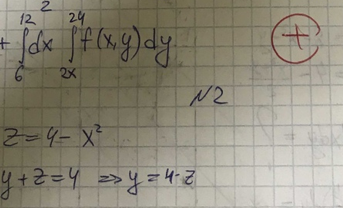 2
+ ∫₆¹² dx ∫₂ₓ²⁴ f(x,y) dy
+
N2
z = 4 - x²
y + z = 4 => y = 4 - z